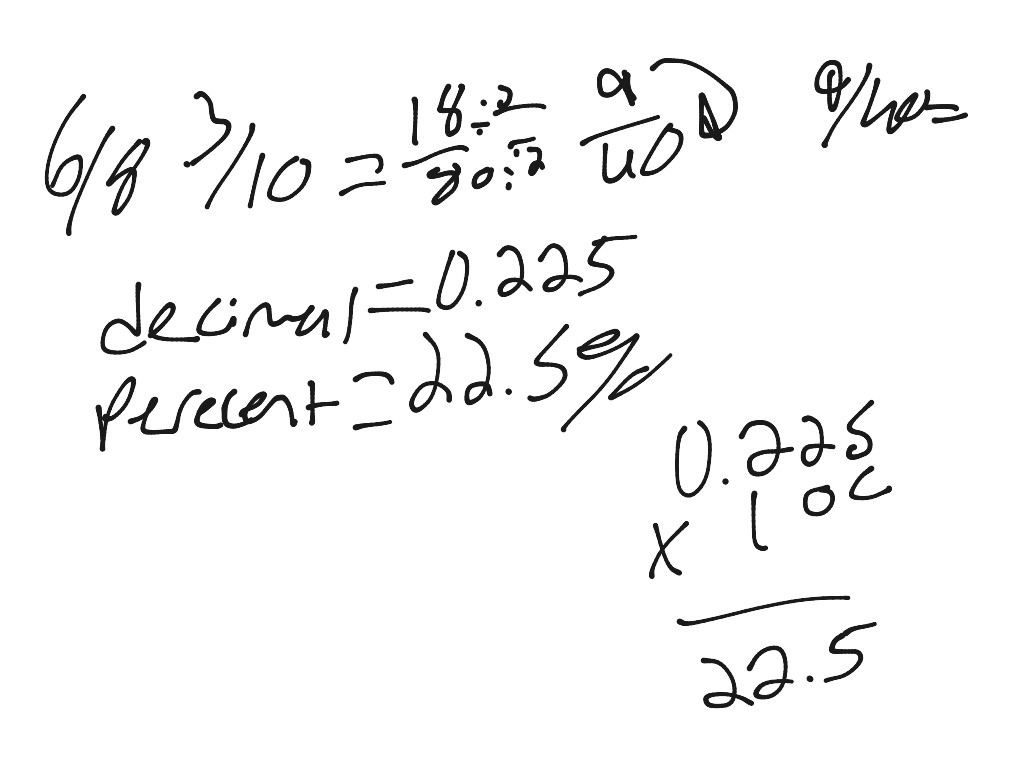 6/8 3/10 = 18÷2/80÷2 9/40 9/40=
decimal = 0.225
Percent = 22.5%
0.225
x 100
22.5